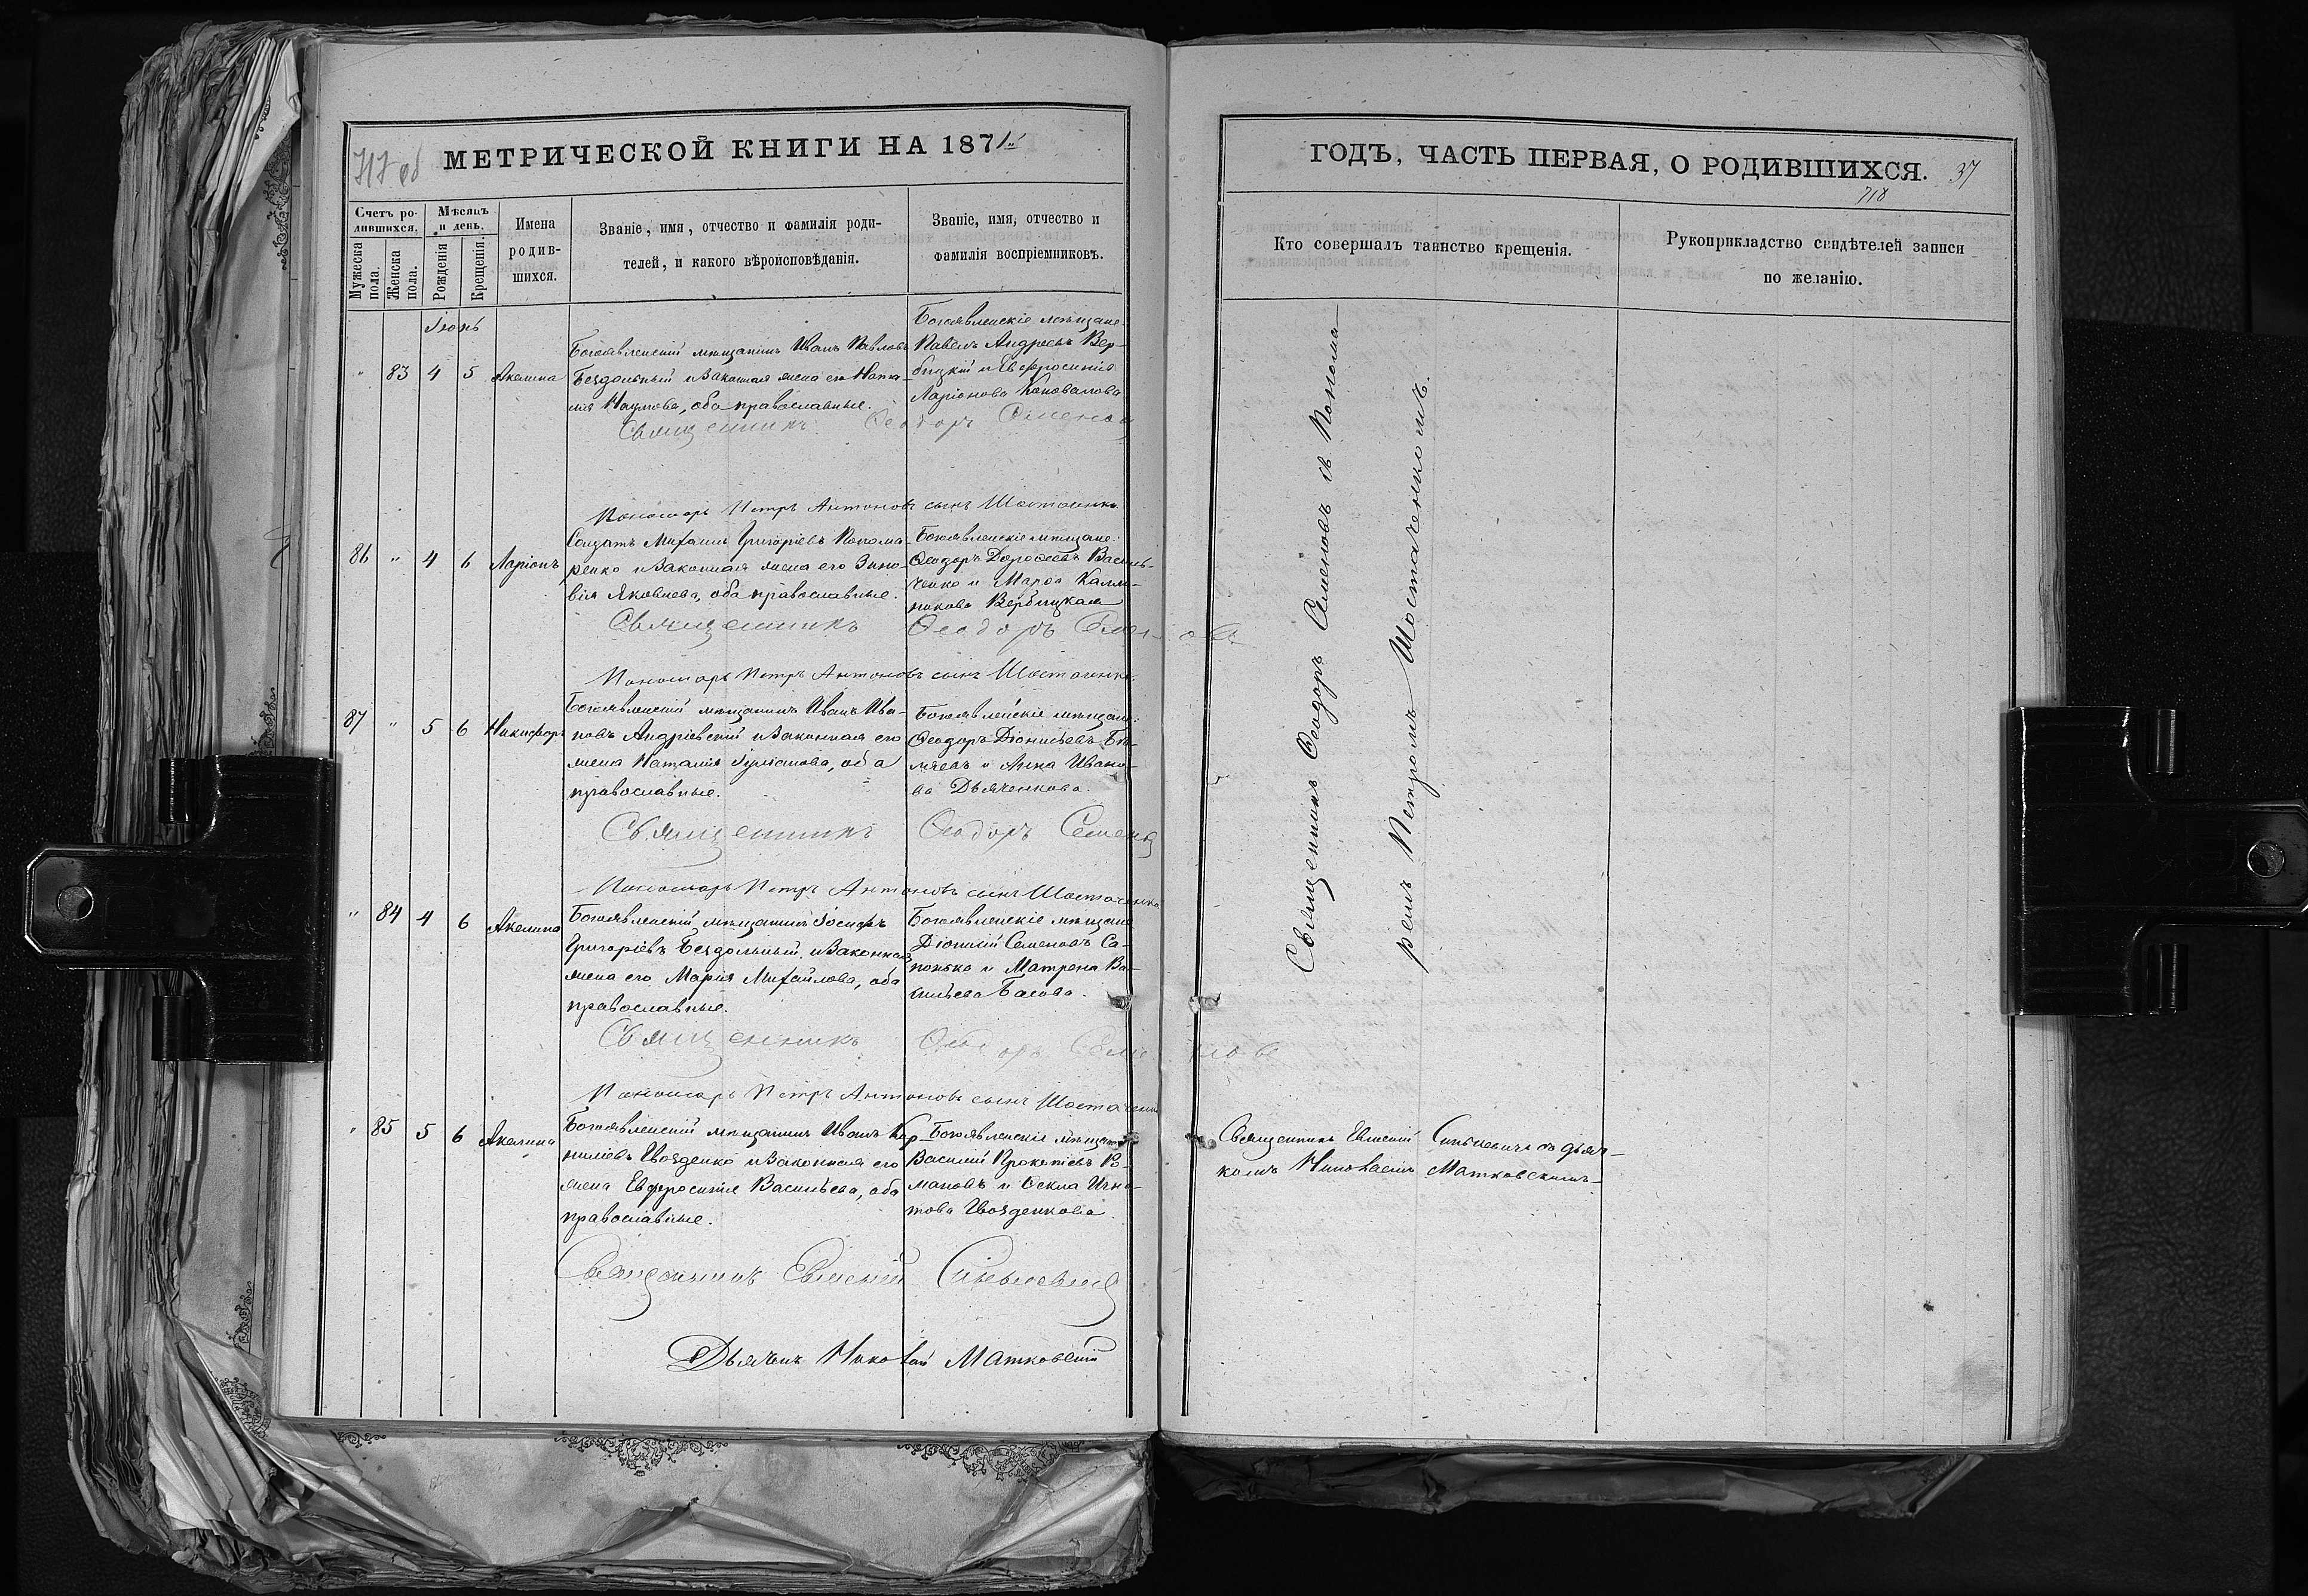 717 об
МЕТРИЧЕСКОЙ КНИГИ НА 1871
Счетъ ро-
дившихся.
Мѣсяцъ
и день.
Мужеска
пола.
Женска
пола.
Рожденія
Крещенія.
Имена
родив-
шихся.
Званіе, имя, отчество и фамилія роди-
телей, и какого вѣроисповѣданія.
Званіе, имя, отчество и
фамилія воспріемниковъ.
Іюнь
" 83 4 5 Акелина
Богоявленскій мѣщанинъ Иванъ Павловъ
Бездольный и Законная жена его Ната-
лія Наумова, оба православные.
Богоявленскіе мѣщане
Павелъ Андреевъ Вер-
бицкій и Евфросинія
Ларіонова Коновалова
Священникъ Ѳеодоръ Семеновъ
Пономарь Петръ Антоновъ сынъ Шостаченко
86 " 4 6 Ларіонъ
Солдатъ Михаилъ Григоріевъ Понома-
ренко и Законная жена его Зино-
вія Яковлева, оба православные.
Богоявленскіе мѣщане:
Ѳеодоръ Дороѳеевъ Василь-
ченко и Марѳа Калли-
никова Вербицкая
Священникъ Ѳеодоръ Семеновъ
Пономарь Петръ Антоновъ сынъ Шостаченко
87 " 5 6 Никифоръ
Богоявленскій мѣщанинъ Иванъ Ива-
новъ Андріевскій и Законная его
жена Наталія Іуліанова, оба
православные.
Богоявленскіе мѣщане:
Ѳеодоръ Діонисіевъ Бѣ-
ляевъ и Анна Ивано-
ва Дьяченкова.
Священникъ Ѳеодоръ Семеновъ
Пономарь Петръ Антоновъ сынъ Шостаченко
" 84 4 6 Акелина
Богоявленскій мѣщанинъ Іосифъ
Григоріевъ Бездольный и Законная
жена его Марія Михайлова, оба
православные.
Богоявленскіе мѣщане
Діонисій Семеновъ Са-
понько и Матрена Ва-
сильева Басова.
Священникъ Ѳеодоръ Семеновъ
Пономарь Петръ Антоновъ сынъ Шостаченко
" 85 5 6 Акелина
Богоявленскій мѣщанинъ Иванъ Кор-
ниліевъ Гвозденко и Законная его
жена Евфросинія Васильева, оба
православные.
Богоявленскіе мѣщане
Василій Прокопіевъ Ро-
мановъ и Ѳекла Игна-
това Гвозденкова
Священникъ Евгеній Синькевичъ
Дьячекъ Николай Матковскій
ГОДЪ, ЧАСТЬ ПЕРВАЯ, О РОДИВШИХСЯ.
37
718
Кто совершалъ таинство крещенія.
Рукоприкладство свидѣтелей записи
по желанію.
Священникъ Ѳеодоръ Семеновъ съ Понома-
ремъ Петромъ Шостаченкомъ.
Священникъ Евгеній Синькевичъ съ дьяч-
комъ Николаемъ Матковскимъ